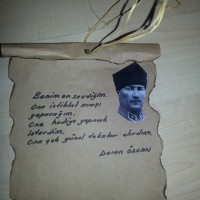 Benim en sevdiğim,
Ona istiklal marşı
yapacağım,
Ona hediye yapmak
isterdim.
Ona çok güzel tokalar alırdım.
Ceren ÖZCAN